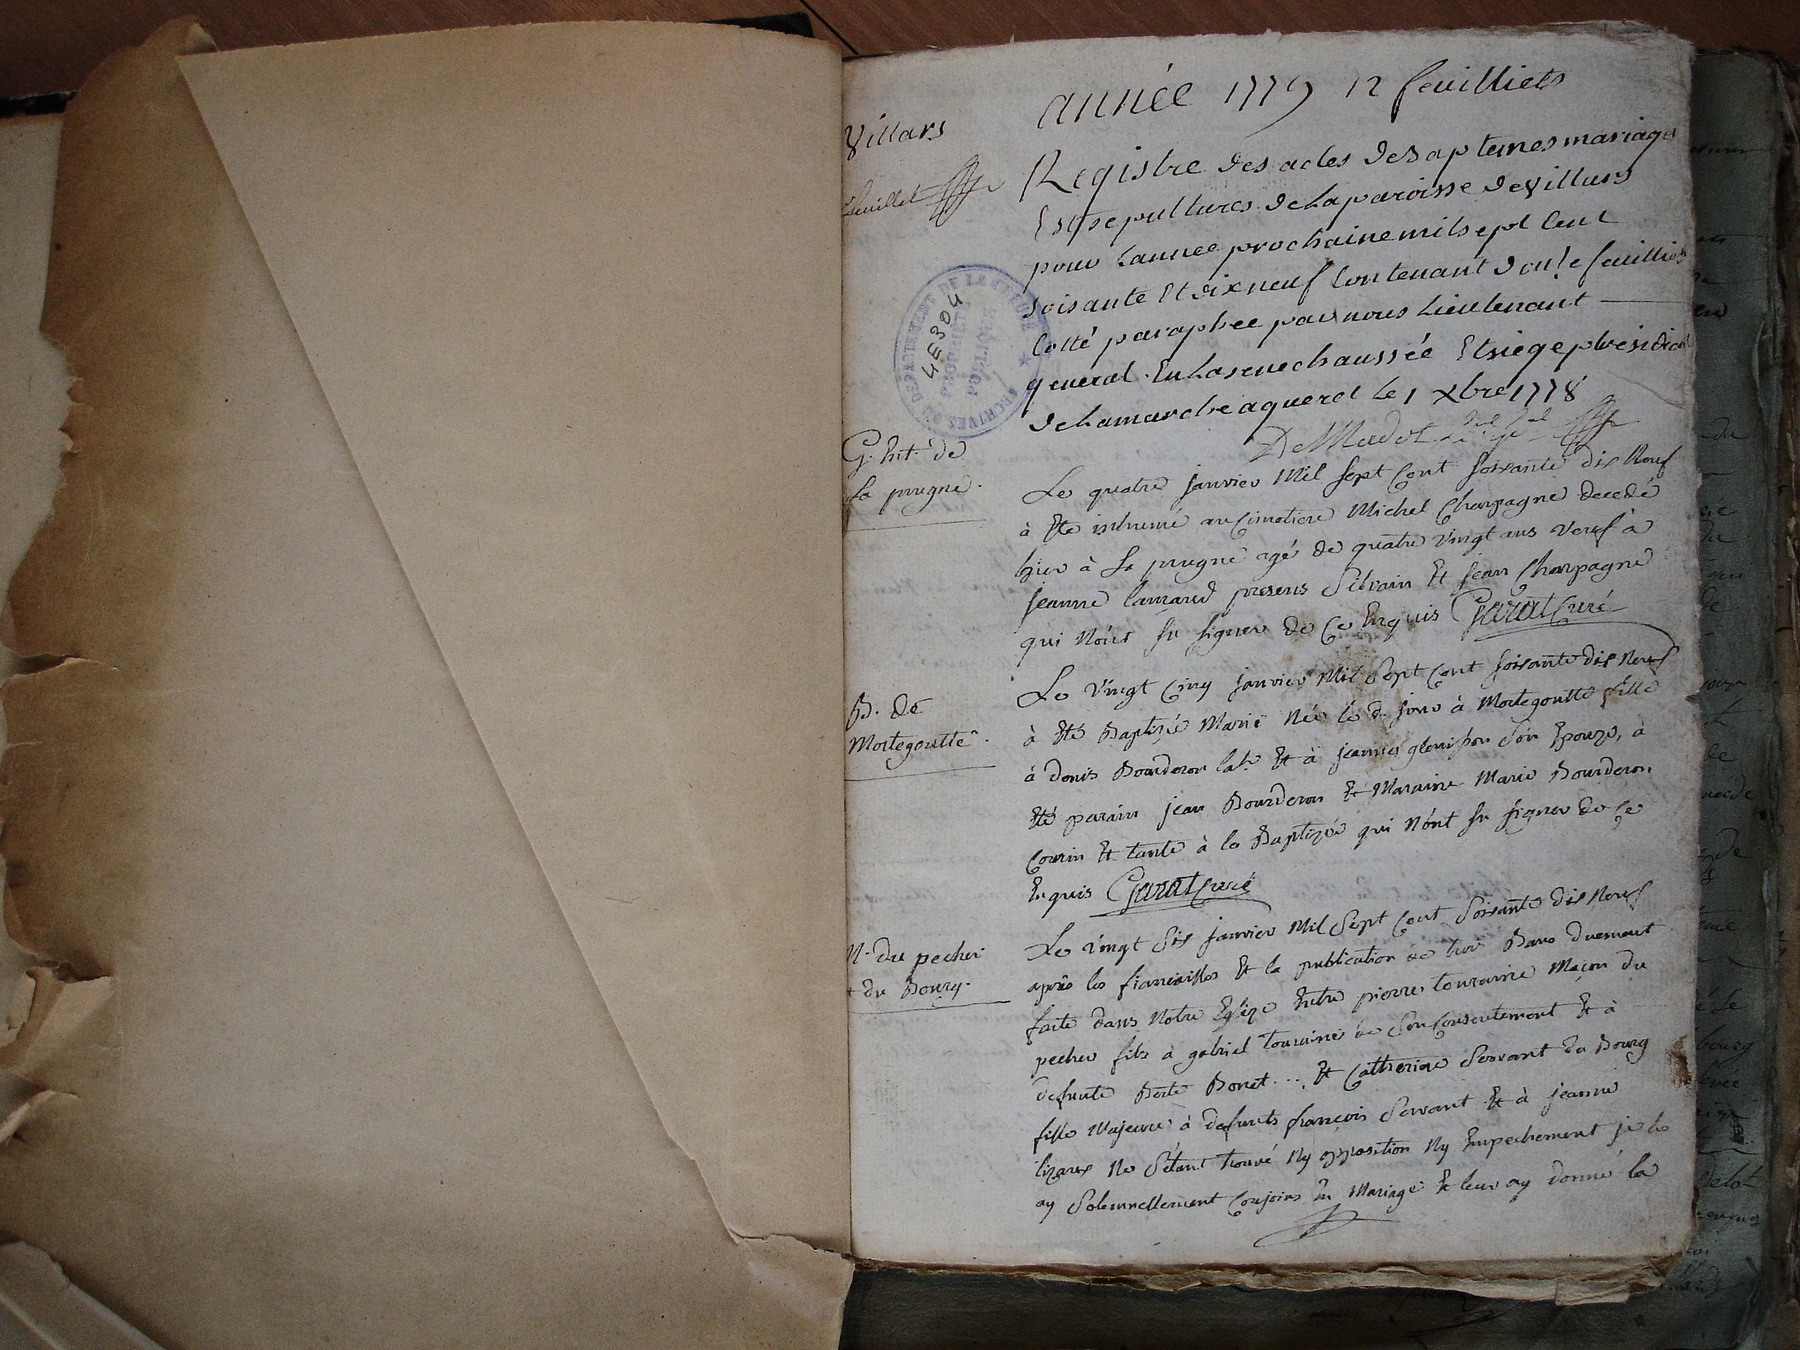 année 1779 12 feuilliets
Villars
feuillet
Registre des actes de Baptemes mariages
Et sepultures de La paroisse de Villars
pour Lannee prochaine mil sept Cent
soisante Et dix neuf Contenant douze feuilliets
Cotté paraphee par nous Lieutenant
general En La senechaussée Et siege presidial
de La marche a gueret Le 1 xbre 1778
DeMadot
ARCHIVES DU DEPARTEMENT DE LA CREUSE
4E304
G. hit. de
La prugne.
Le quatre janvier Mil sept Cent soisante dix Neuf
à Eté inhumé au Cimetiere Michel Charpagne decedé
hier à La prugne agé de quatre Vingt ans Veuf à
jeanne lamard presens Silvain Et jean Charpagne
qui N'ont su signer de Ce Enquis Garat Curé
B. de
Mortegoutte.
Le Vingt Cinq janvier Mil Sept Cent soisante dix Neuf
à Eté Baptizée Marie Née le d. jour à Mortegoutte fille
à denis Bourderon lab. Et à jeanne glenisson son Epouze, à
Eté parain jean Bourderon Et Maraine Marie Bourderon
Cousin Et tante à la Baptizée qui N'ont su signer de Ce
Enquis Garat Curé
M. du pecher
+ du Bourg.
Le Vingt Six janvier Mil Sept Cent Soisante dix Neuf
après les fiancailles Et la publication de trois Bans duement
faite dans Notre Eglize Entre pierre touraine Maçon du
pecher fils à gabriel touraine de Son Consentement Et à
defunte Berte Bonet ... Et Catherine Servant du Bourg
fille Majeure à defunts françois Servant Et à jeanne
ne S'étant trouvé Ny opposition Ny Empechement je les
ay Solemnellement Conjoins En Mariage Et leur ay donné la